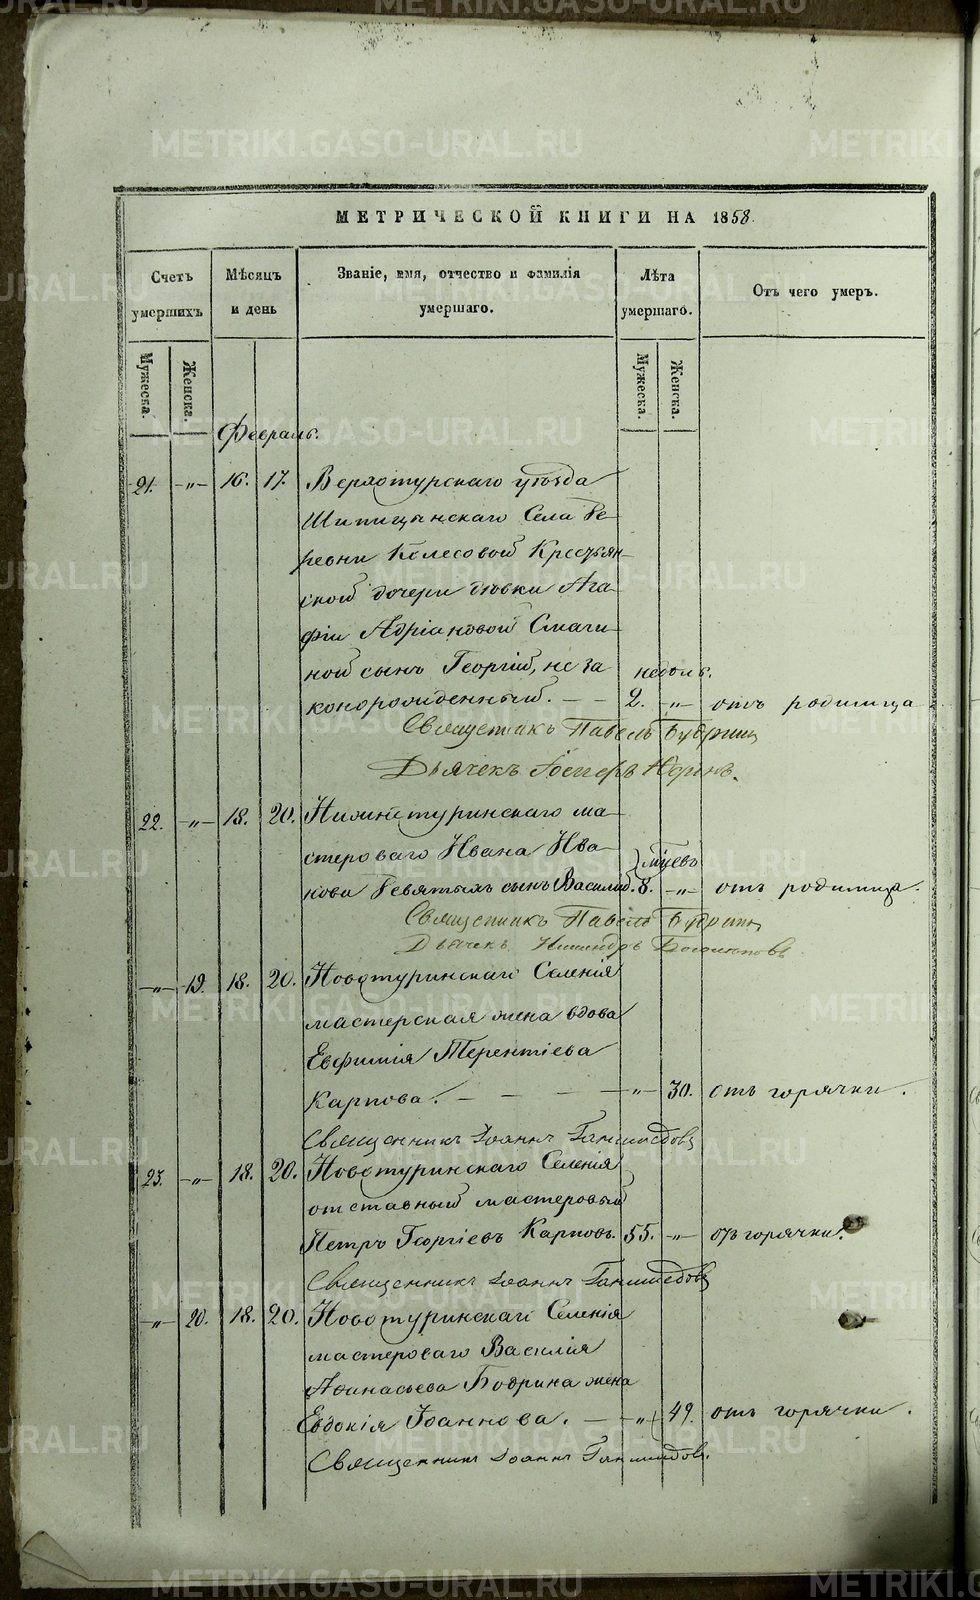 МЕТРИЧЕСКОЙ КНИГИ НА 1858.
Счетъ умершихъ
Мѣсяцъ и день
Званіе, имя, отчество и фамилія умершаго.
Лѣта умершаго.
Отъ чего умеръ.
Мужеска. Женска.
Мужеска. Женска.
Февраль.
21. -„- 16. 17. Верхотурскаго уѣзда
Шипицынскаго Села де-
ревни Колесовой Крестьян-
ской дочери дѣвки Ага-
фіи Адріановой Смаги-
ной сынъ Георгій, не за
недѣль.
конорожденный. - - 2. -„- отъ родимца
Священникъ Павелъ
Дьячекъ
22. -„- 18. 20. Нижнетуринскаго ма-
стероваго Ивана Ива-
мѣсяцевъ
нова Девятыхъ сынъ Василій. 8. -„- отъ родимца.
Священникъ Павелъ
Дьячекъ
-„- 19. 18. 20. Новотуринскаго Селенія
мастерская жена вдова
Евфимія Терентіева
Карпова. - - - - -„- 30. отъ горячки.
Священникъ Іоаннъ
23. -„- 18. 20. Новотуринскаго Селенія
отставный мастеровый
Петръ Георгіевъ Карповъ. 55. -„- отъ горячки.
Священникъ Іоаннъ
-„- 20. 18. 20. Новотуринскаго Селенія
мастероваго Василія
Афанасьева Бодрина жена
Евдокія Іоаннова. - -„- 49. отъ горячки.
Священникъ Іоаннъ
METRIKI.GASO-URAL.RU